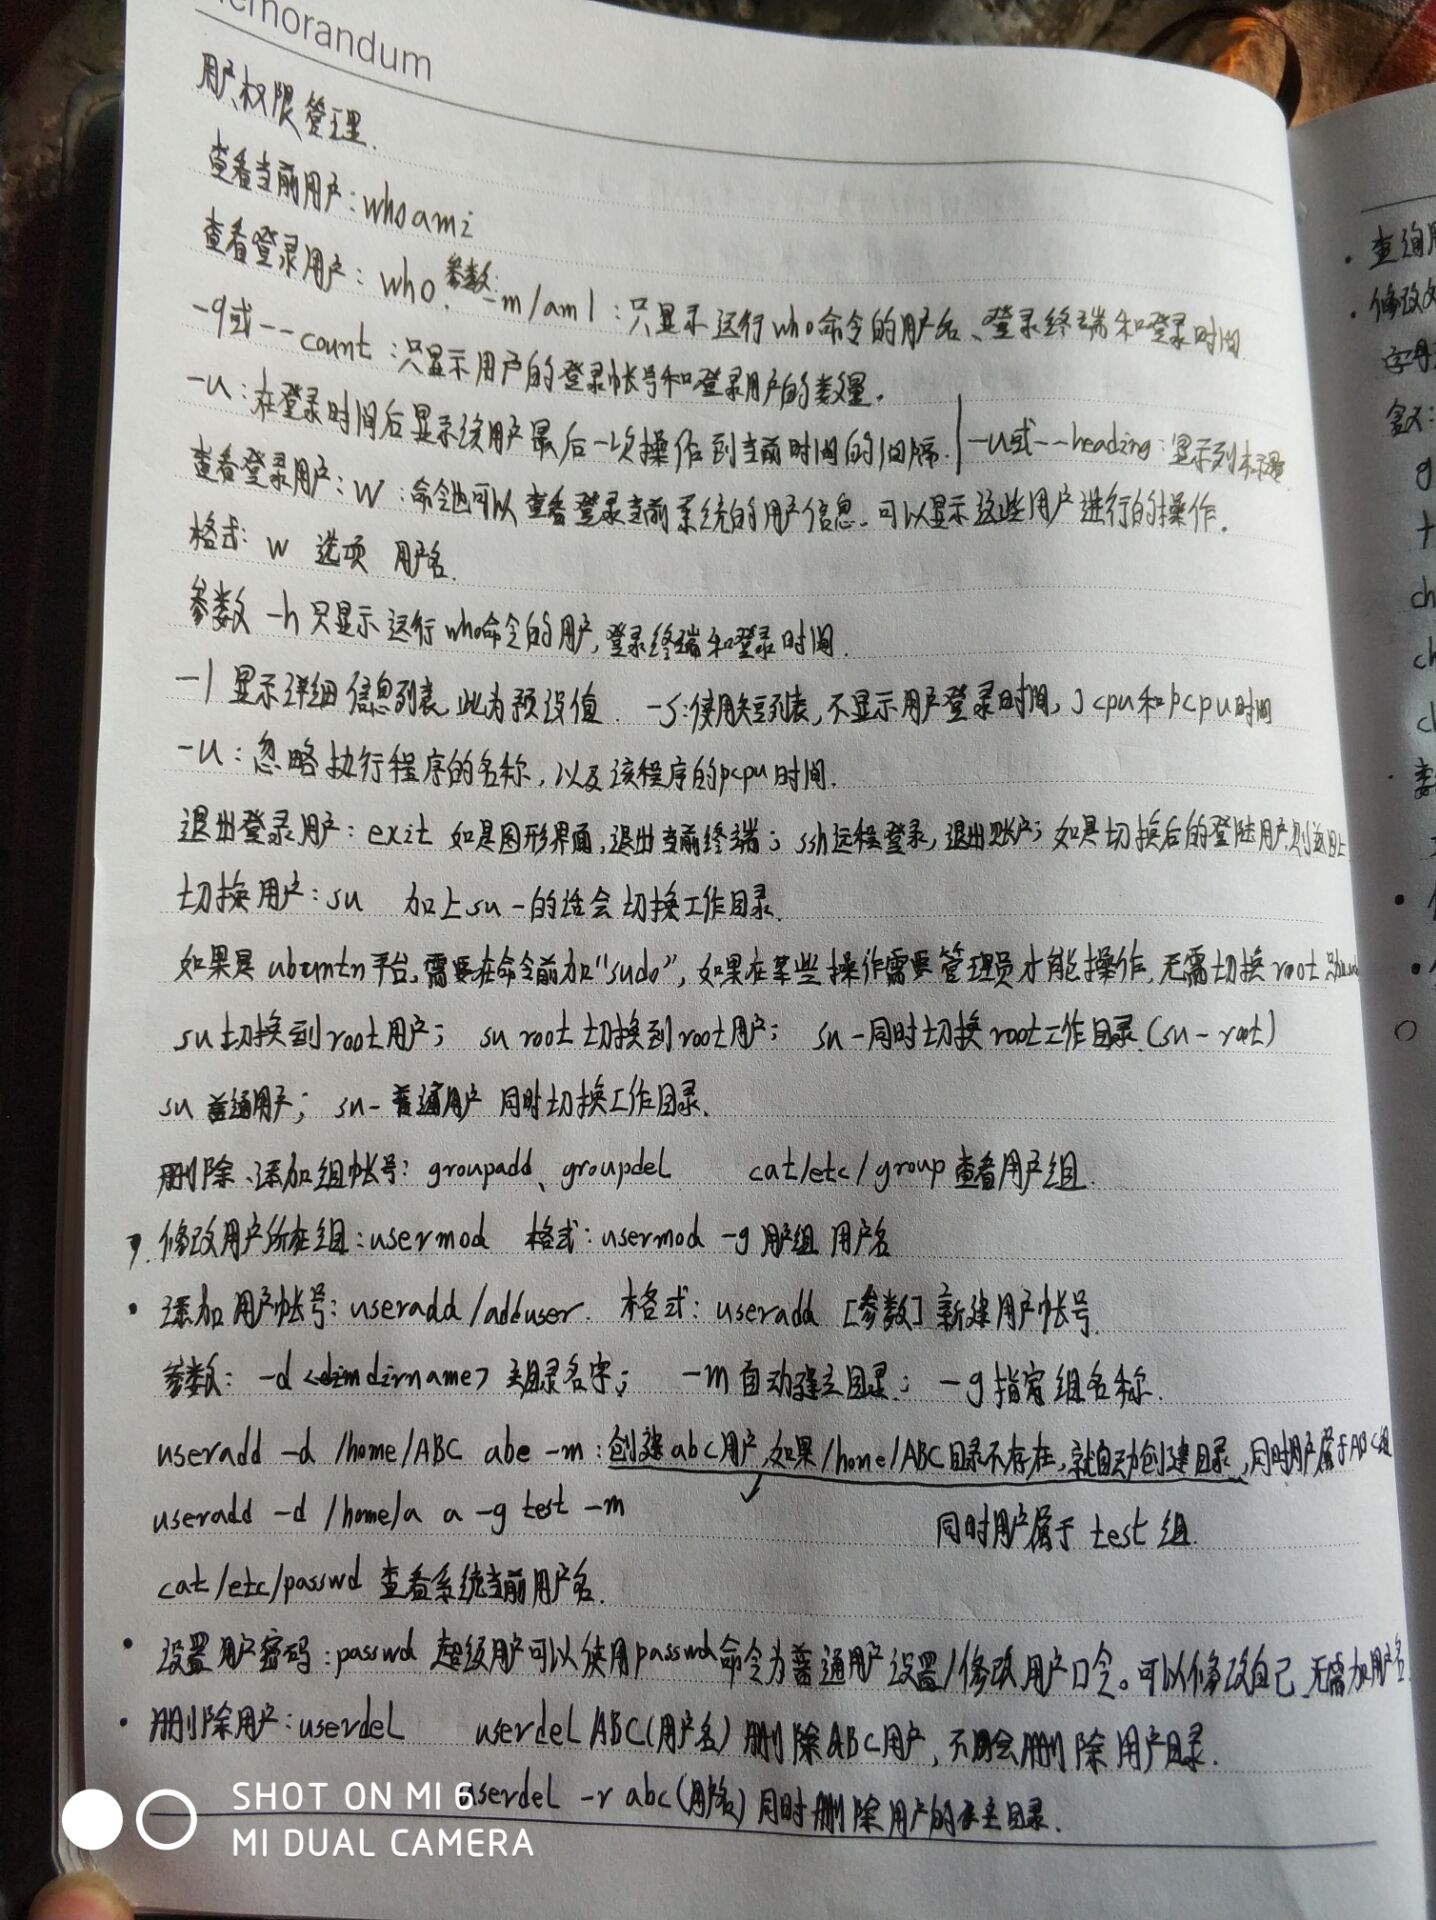 memorandum
用户权限管理.
查看当前用户: whoami
查看登录用户: who. 参数: -m/am I: 只显示运行who命令的用户名、登录终端和登录时间.
-q或--count: 只显示用户的登录帐号和登录用户的数量。
-u: 在登录时间后显示该用户最后一次操作到当前时间的间隔. | -u或--heading: 显示列标题.
查看登录用户: w :命令也可以查看登录当前系统的用户信息. 可以显示这些用户进行的操作.
格式: w 选项 用户名.
参数 -h 只显示运行who命令的用户, 登录终端和登录时间.
-l 显示详细信息列表, 此为预设值. -s:使用短列表, 不显示用户登录时间, Jcpu和pcpu时间
-u: 忽略执行程序的名称, 以及该程序的pcpu时间.
退出登录用户: exit 如是图形界面, 退出当前终端; ssh远程登录, 退出账户; 如是切换后的登陆用户, 则返回上
切换用户: su 加上su -的话会切换工作目录.
如果是ubuntn平台, 需要在命令前加"sudo", 如果在某些操作需要管理员才能操作, 无需切换root
su切换到root用户; su root 切换到root用户; su -同时切换root工作目录.(su - root)
su 普通用户; su- 普通用户 同时切换工作目录.
删除、添加组帐号: groupadd、groupdel cat/etc/group 查看用户组.
修改用户所在组: usermod 格式: usermod -g 用户组 用户名
• 添加用户帐号: useradd/adduser. 格式: useradd [参数] 新建用户帐号.
参数: -d <dirname> 主目录名字; -m 自动建立目录; -g 指定组名称.
useradd -d /home/ABC abe -m: 创建abc用户, 如果/home/ABC目录不存在, 就自动创建目录, 同时用户属于ABC组
useradd -d /home/a a -g test -m 同时用户属于 test 组.
cat/etc/passwd 查看系统当前用户名.
• 设置用户密码: passwd 超级用户可以使用passwd命令为普通用户设置/修改用户口令。可以修改自己, 无需加用户名.
• 删除用户: userdel userdel ABC(用户名) 删除ABC用户, 不会删除用户目录.
userdel -r abc(用户名) 同时删除用户的主目录.
查询用
• 修改文
字母
含义:
g
ch
ch
SHOT ON MI 6
MI DUAL CAMERA